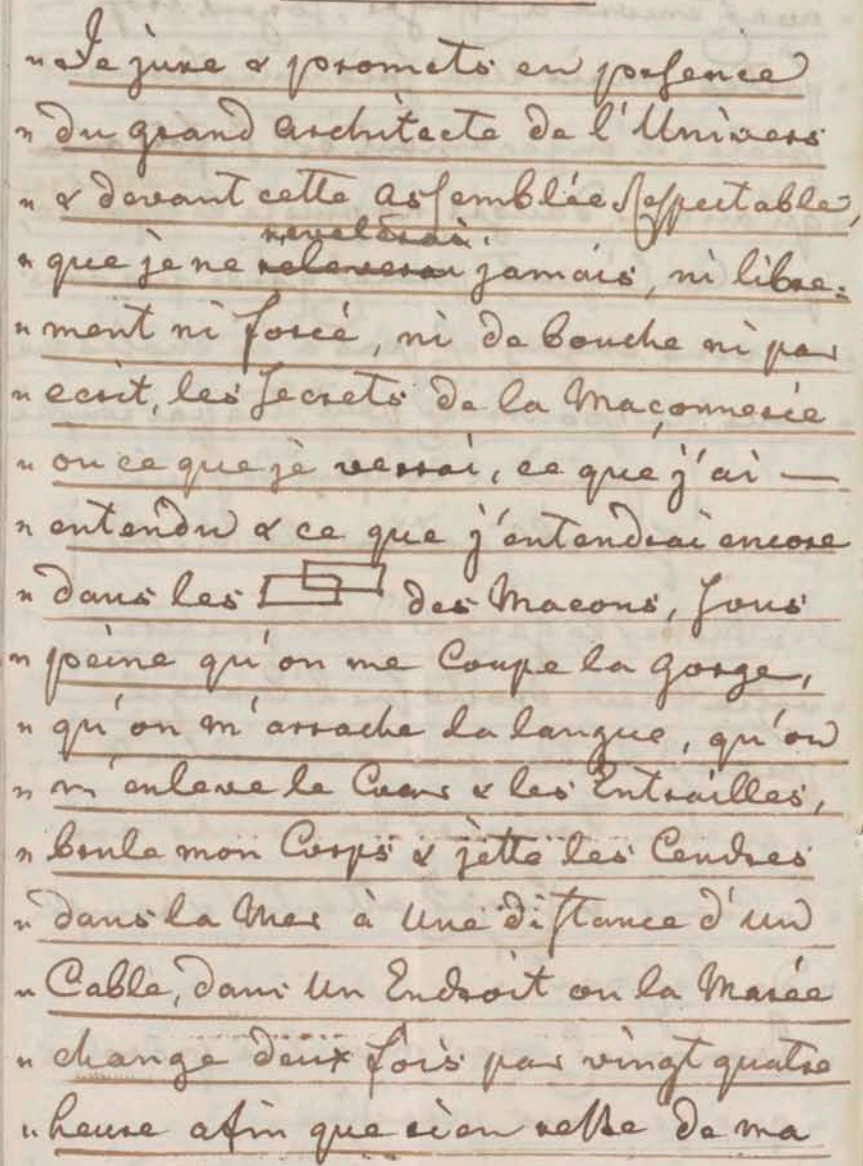 "Je jure & promets en presence
" du grand Architecte de l'Univers
" & devant cette Assemblée Respectable,
revelerai.
" que je ne releverai jamais, ni libre=
" ment ni forcé, ni de bouche ni par
" ecrit, les Secrets de la Maçonnerie
" ou ce que je verrai, ce que j'ai —
" entendu & ce que j'entendrai encore
" dans les des Macons, Sous
" peine qu'on me Coupe la gorge,
" qu'on m'arrache la langue, qu'on
" m'enleve le Coeur & les Entrailles,
" brule mon Corps & jette les Cendres
" dans la Mer à Une distance d'un
" Cable, dans Un Endroit ou la Marée
" change deux fois par vingt quatre
" heure afin que rien reste de ma